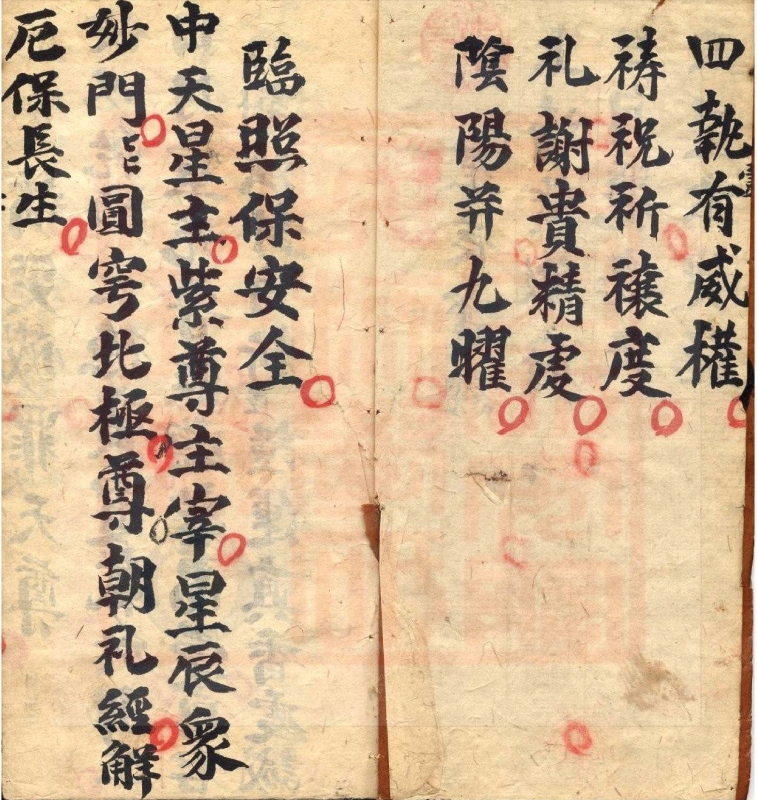 四執有威權
祷祝祈禳度
礼謝貴精虔
陰陽并九曜
臨照保安全
中天星主紫尊主宰星辰衆
妙門〻圓穹北極尊朝礼經解
厄保長生